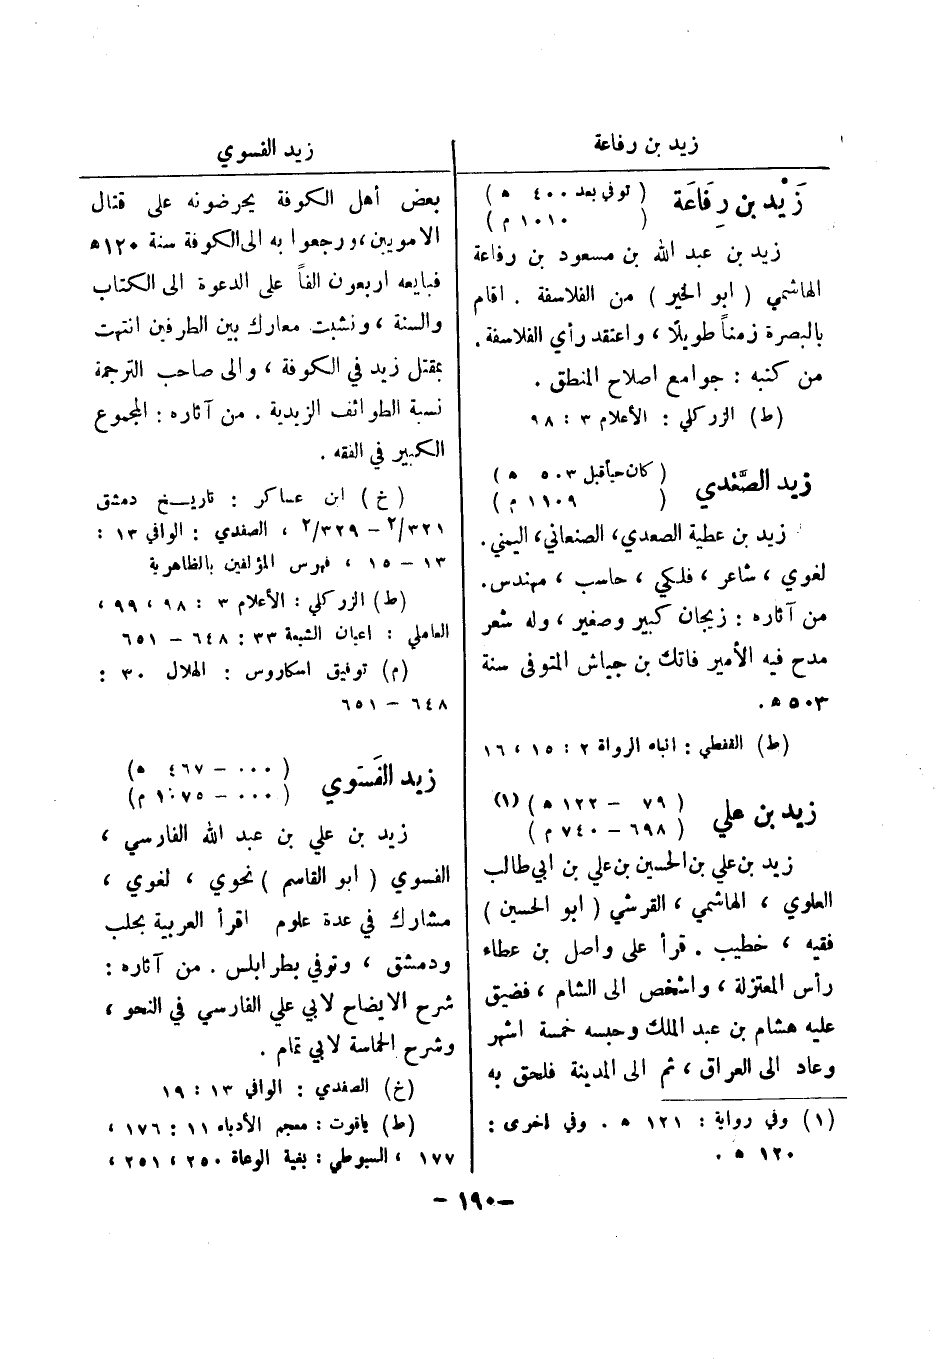 زيد بن رفاعة
زَيْد بن رِفَاعَة
( توفي بعد ٤٠٠ ه )
( ١٠١٠ م )
زيد بن عبد الله بن مسعود بن رفاعة
الهاشمي ( ابو الخير ) من الفلاسفة . اقام
بالبصرة زمناً طويلًا ، واعتقد رأي الفلاسفة .
من كتبه : جوامع اصلاح المنطق .
(ط) الزركلي : الأعلام ٣ : ٩٨
زيد الصَّعْدي
( كان حياً قبل ٥٠٣ ه )
( ١١٠٩ م )
زيد بن عطية الصعدي، الصنعاني، اليمني .
لغوي ، شاعر ، فلكي ، حاسب ، مهندس .
من آثاره : زيجان كبير وصغير ، وله شعر
مدح فيه الأمير فاتك بن جياش المتوفى سنة
٥٠٣ ه .
(ط) القفطي : انباه الرواة ٢ : ١٥ ، ١٦
زيد بن علي
( ٧٩ – ١٢٢ ه ) (١)
( ٦٩٨ – ٧٤٠ م )
زيد بن علي بن الحسين بن علي بن ابي طالب
العلوي ، الهاشمي ، القرشي ( ابو الحسين )
فقيه ، خطيب . قرأ على واصل بن عطاء
رأس المعتزلة ، واشخص الى الشام ، فضيق
عليه هشام بن عبد الملك وحبسه خمسة اشهر
وعاد الى العراق ، ثم الى المدينة فلحق به
(١) وفي رواية : ١٢١ ه . وفي اخرى :
١٢٠ ه .
زيد الفسوي
بعض أهل الكوفة يحرضونه على قتال
الامويين ، ورجعوا به الى الكوفة سنة ١٢٠ ه
فبايعه اربعون الفاً على الدعوة الى الكتاب
والسنة ، ونشبت معارك بين الطرفين انتهت
بمقتل زيد في الكوفة ، والى صاحب الترجمة
نسبة الطوائف الزيدية . من آثاره : المجموع
الكبير في الفقه .
(خ) ابن عساكر : تاريخ دمشق
٢/٣٢١ – ٢/٣٢٩ ، الصفدي : الوافي ١٣ :
١٣ – ١٥ ، فهرس المؤلفين بالظاهرية
(ط) الزركلي : الأعلام ٣ : ٩٨ ، ٩٩ ،
العاملي : اعيان الشيعة ٣٣ : ٦٤٨ – ٦٥١
(م) توفيق اسكاروس : الهلال ٣٠ :
٦٤٨ – ٦٥١
زيد الفَسَوي
( ٠٠٠ – ٤٦٧ ه )
( ٠٠٠ – ١٠٧٥ م )
زيد بن علي بن عبد الله الفارسي ،
الفسوي ( ابو القاسم ) نحوي ، لغوي ،
مشارك في عدة علوم اقرأ العربية بحلب
ودمشق ، وتوفي بطرابلس . من آثاره :
شرح الايضاح لابي علي الفارسي في النحو ،
وشرح الحماسة لابي تمام .
(خ) الصفدي : الوافي ١٣ : ١٩
(ط) ياقوت : معجم الأدباء ١١ : ١٧٦ ،
١٧٧ ، السيوطي : بغية الوعاة ٢٥٠ ، ٢٥١ ،
– ١٩٠ –